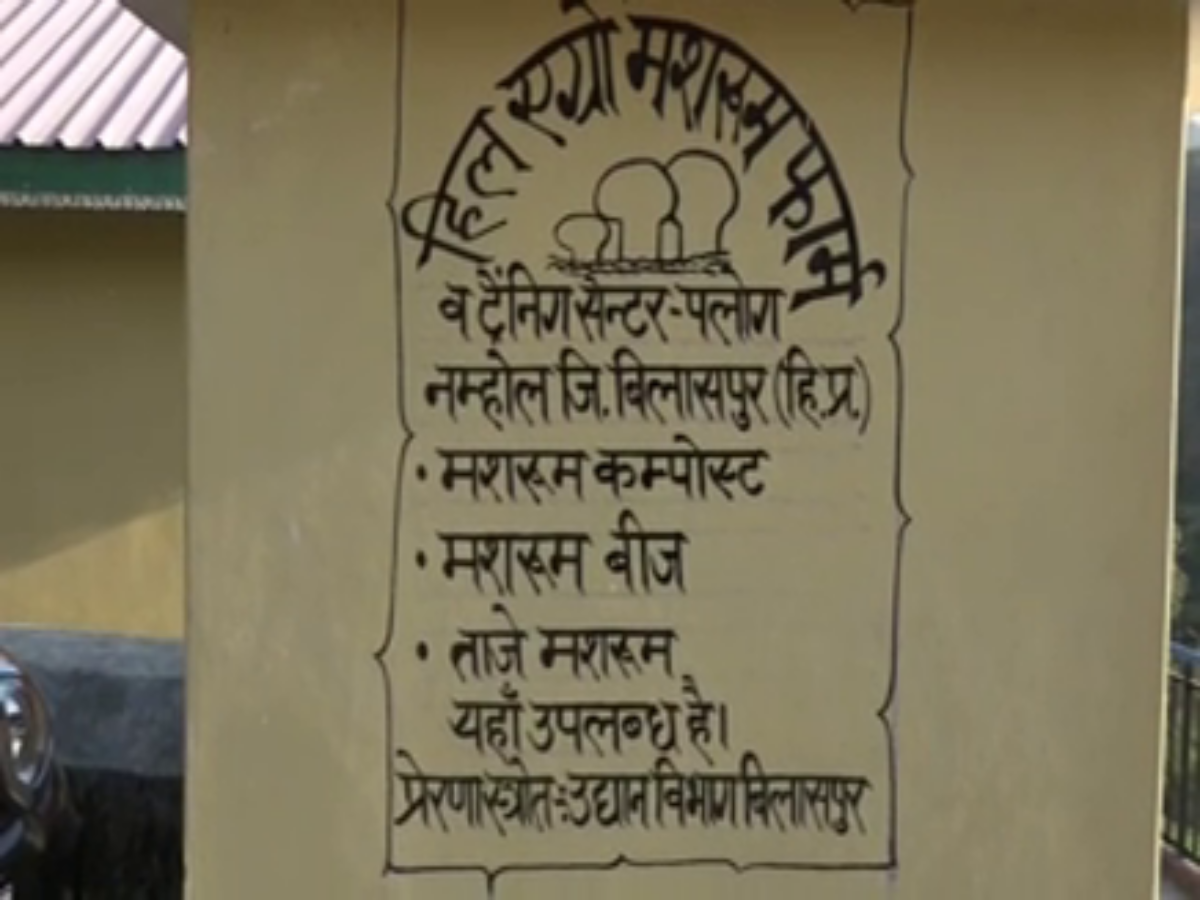 हिल एग्रो मशरूम फार्म
व ट्रेंनिग सेन्टर-पलोग
नम्होल जि. बिलासपुर (हि.प्र.)
• मशरूम कम्पोस्ट
• मशरूम बीज
• ताजे मशरूम
यहाँ उपलब्ध है।
प्रेरणा स्त्रोत:-उद्यान विभाग बिलासपुर